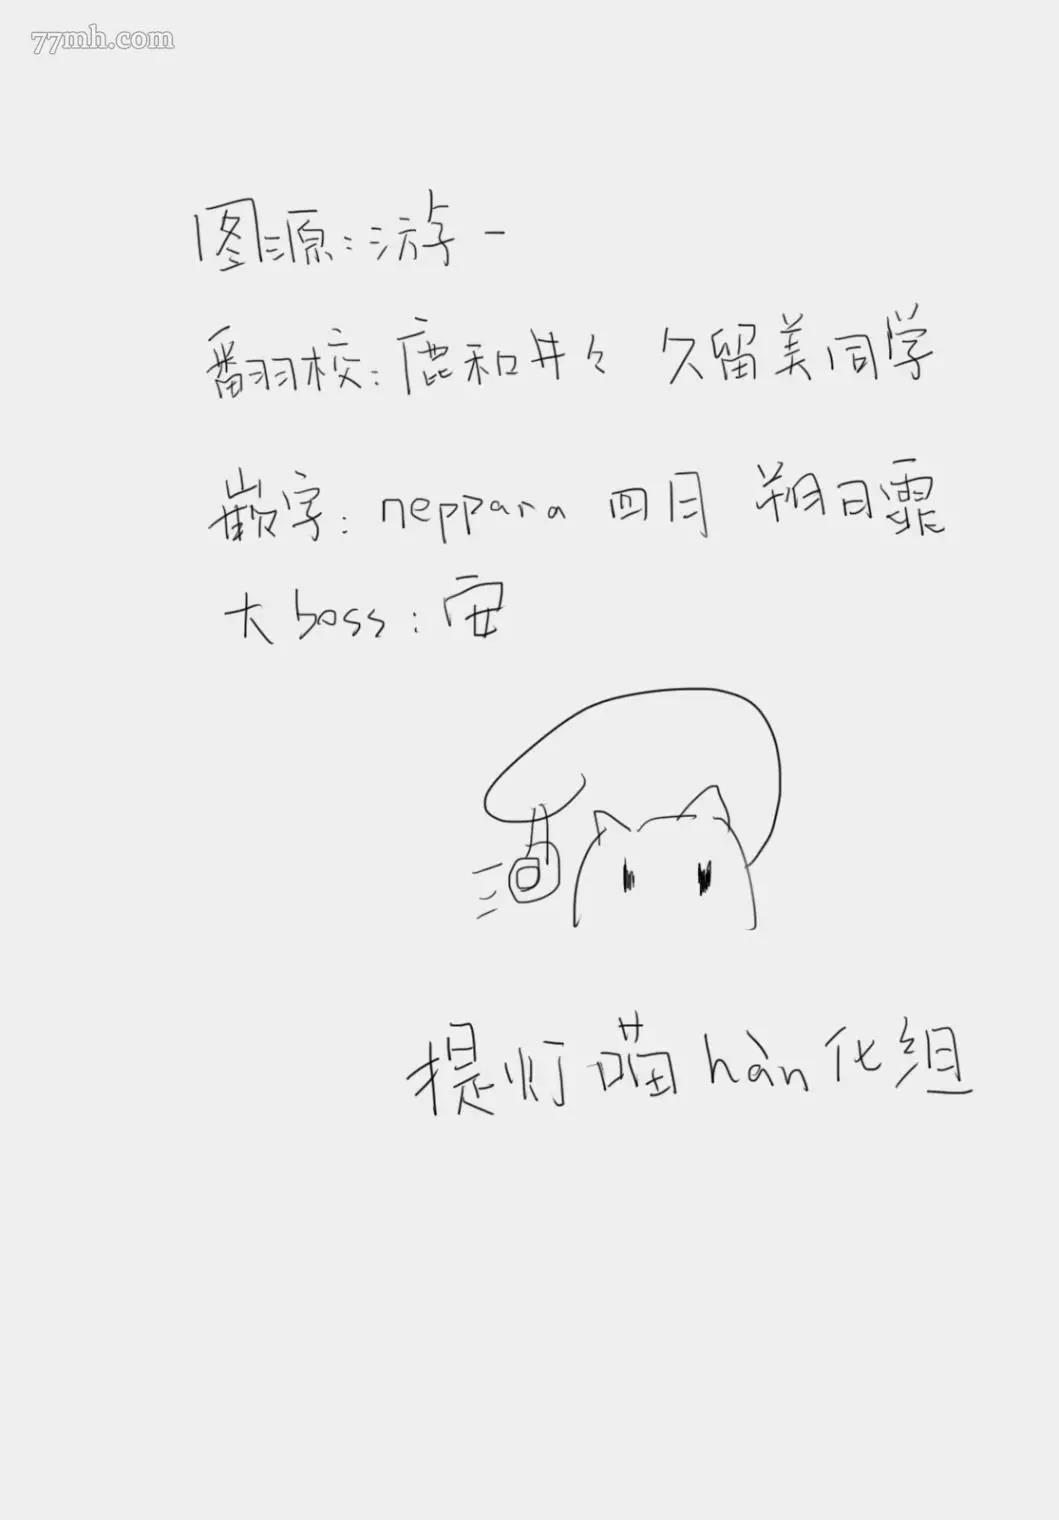 77mh.com
图源:游一
翻校:鹿和井々 久留美同学
嵌字:neppara 四月 朔日霏
大boss:安
提灯喵hàn化组